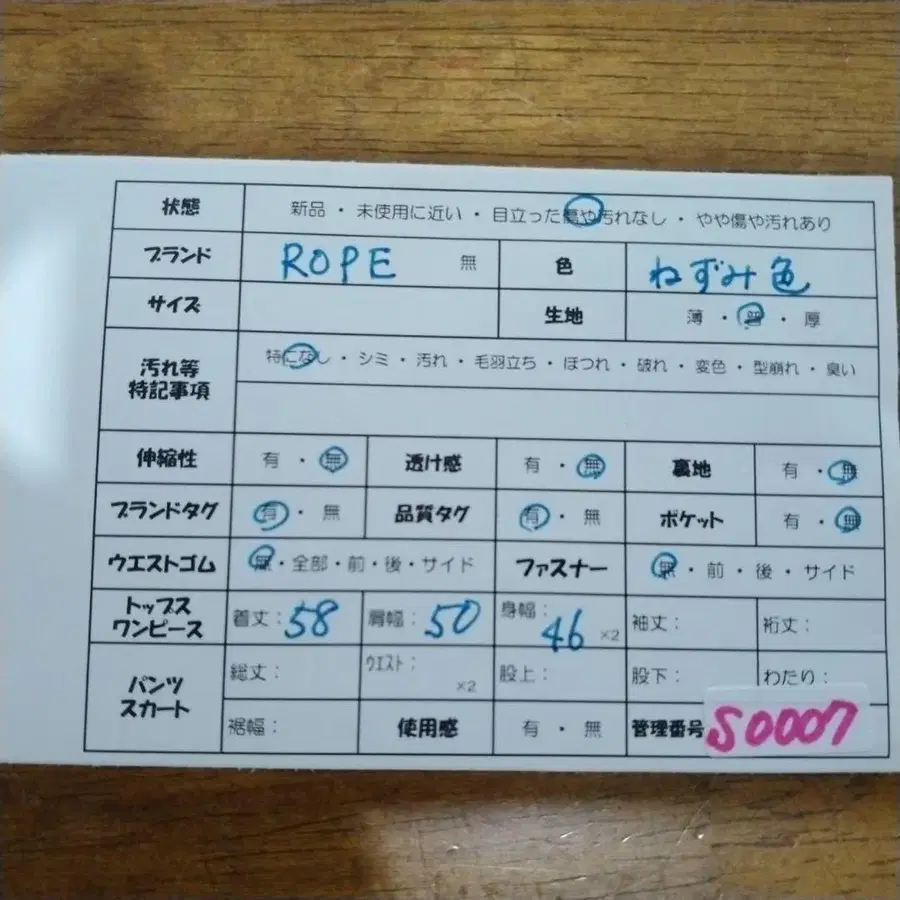 状態 新品 ・ 未使用に近い ・ 目立った傷や汚れなし ・ やや傷や汚れあり
ブランド ROPE 無 色 ねずみ色
サイズ 生地 薄 ・ 普 ・ 厚
汚れ等 特記事項 特になし ・ シミ ・ 汚れ ・ 毛羽立ち ・ ほつれ ・ 破れ ・ 変色 ・ 型崩れ ・ 臭い
伸縮性 有 ・ 無 透け感 有 ・ 無 裏地 有 ・ 無
ブランドタグ 有 ・ 無 品質タグ 有 ・ 無 ポケット 有 ・ 無
ウエストゴム 無 ・ 全部 ・ 前 ・ 後 ・ サイド ファスナー 無 ・ 前 ・ 後 ・ サイド
トップス ワンピース 着丈: 58 肩幅: 50 身幅: 46 ×2 袖丈: 裄丈:
パンツ スカート 総丈: ウエスト: ×2 股上: 股下: わたり:
裾幅: 使用感 有 ・ 無 管理番号 S0007